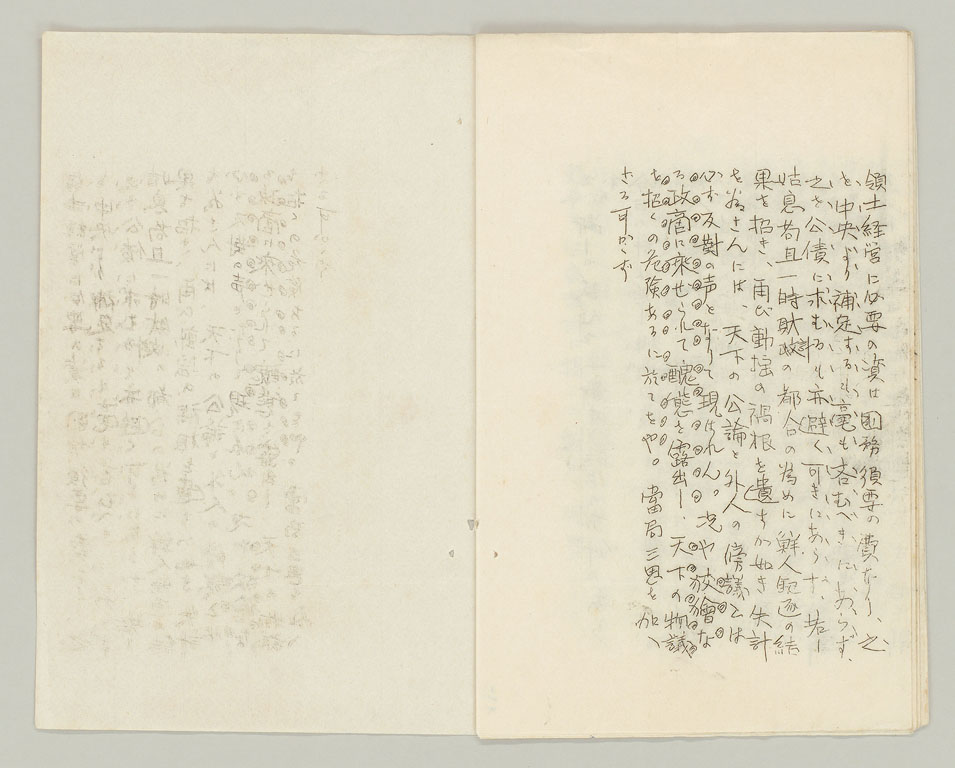 領土経営に必要の資は国務須要の費なり、之
を中央より補足するも毫も吝むべきにあらず、
之を公債に求むるも亦避く可きにあらず、若し
姑息苟且一時財政の都合の為めに鮮人駆逐の結
果を招き、再び動揺の禍根を遺すが如き失計
を為さんには、天下の公論と外人の傍議とは
必ず反対の声となりて現はれん。况や狡獪な
る政商に乗せられて醜態を露出し、天下の物議
を招くの危険あるに於てをや。當局三思を加へ
ざる可からず